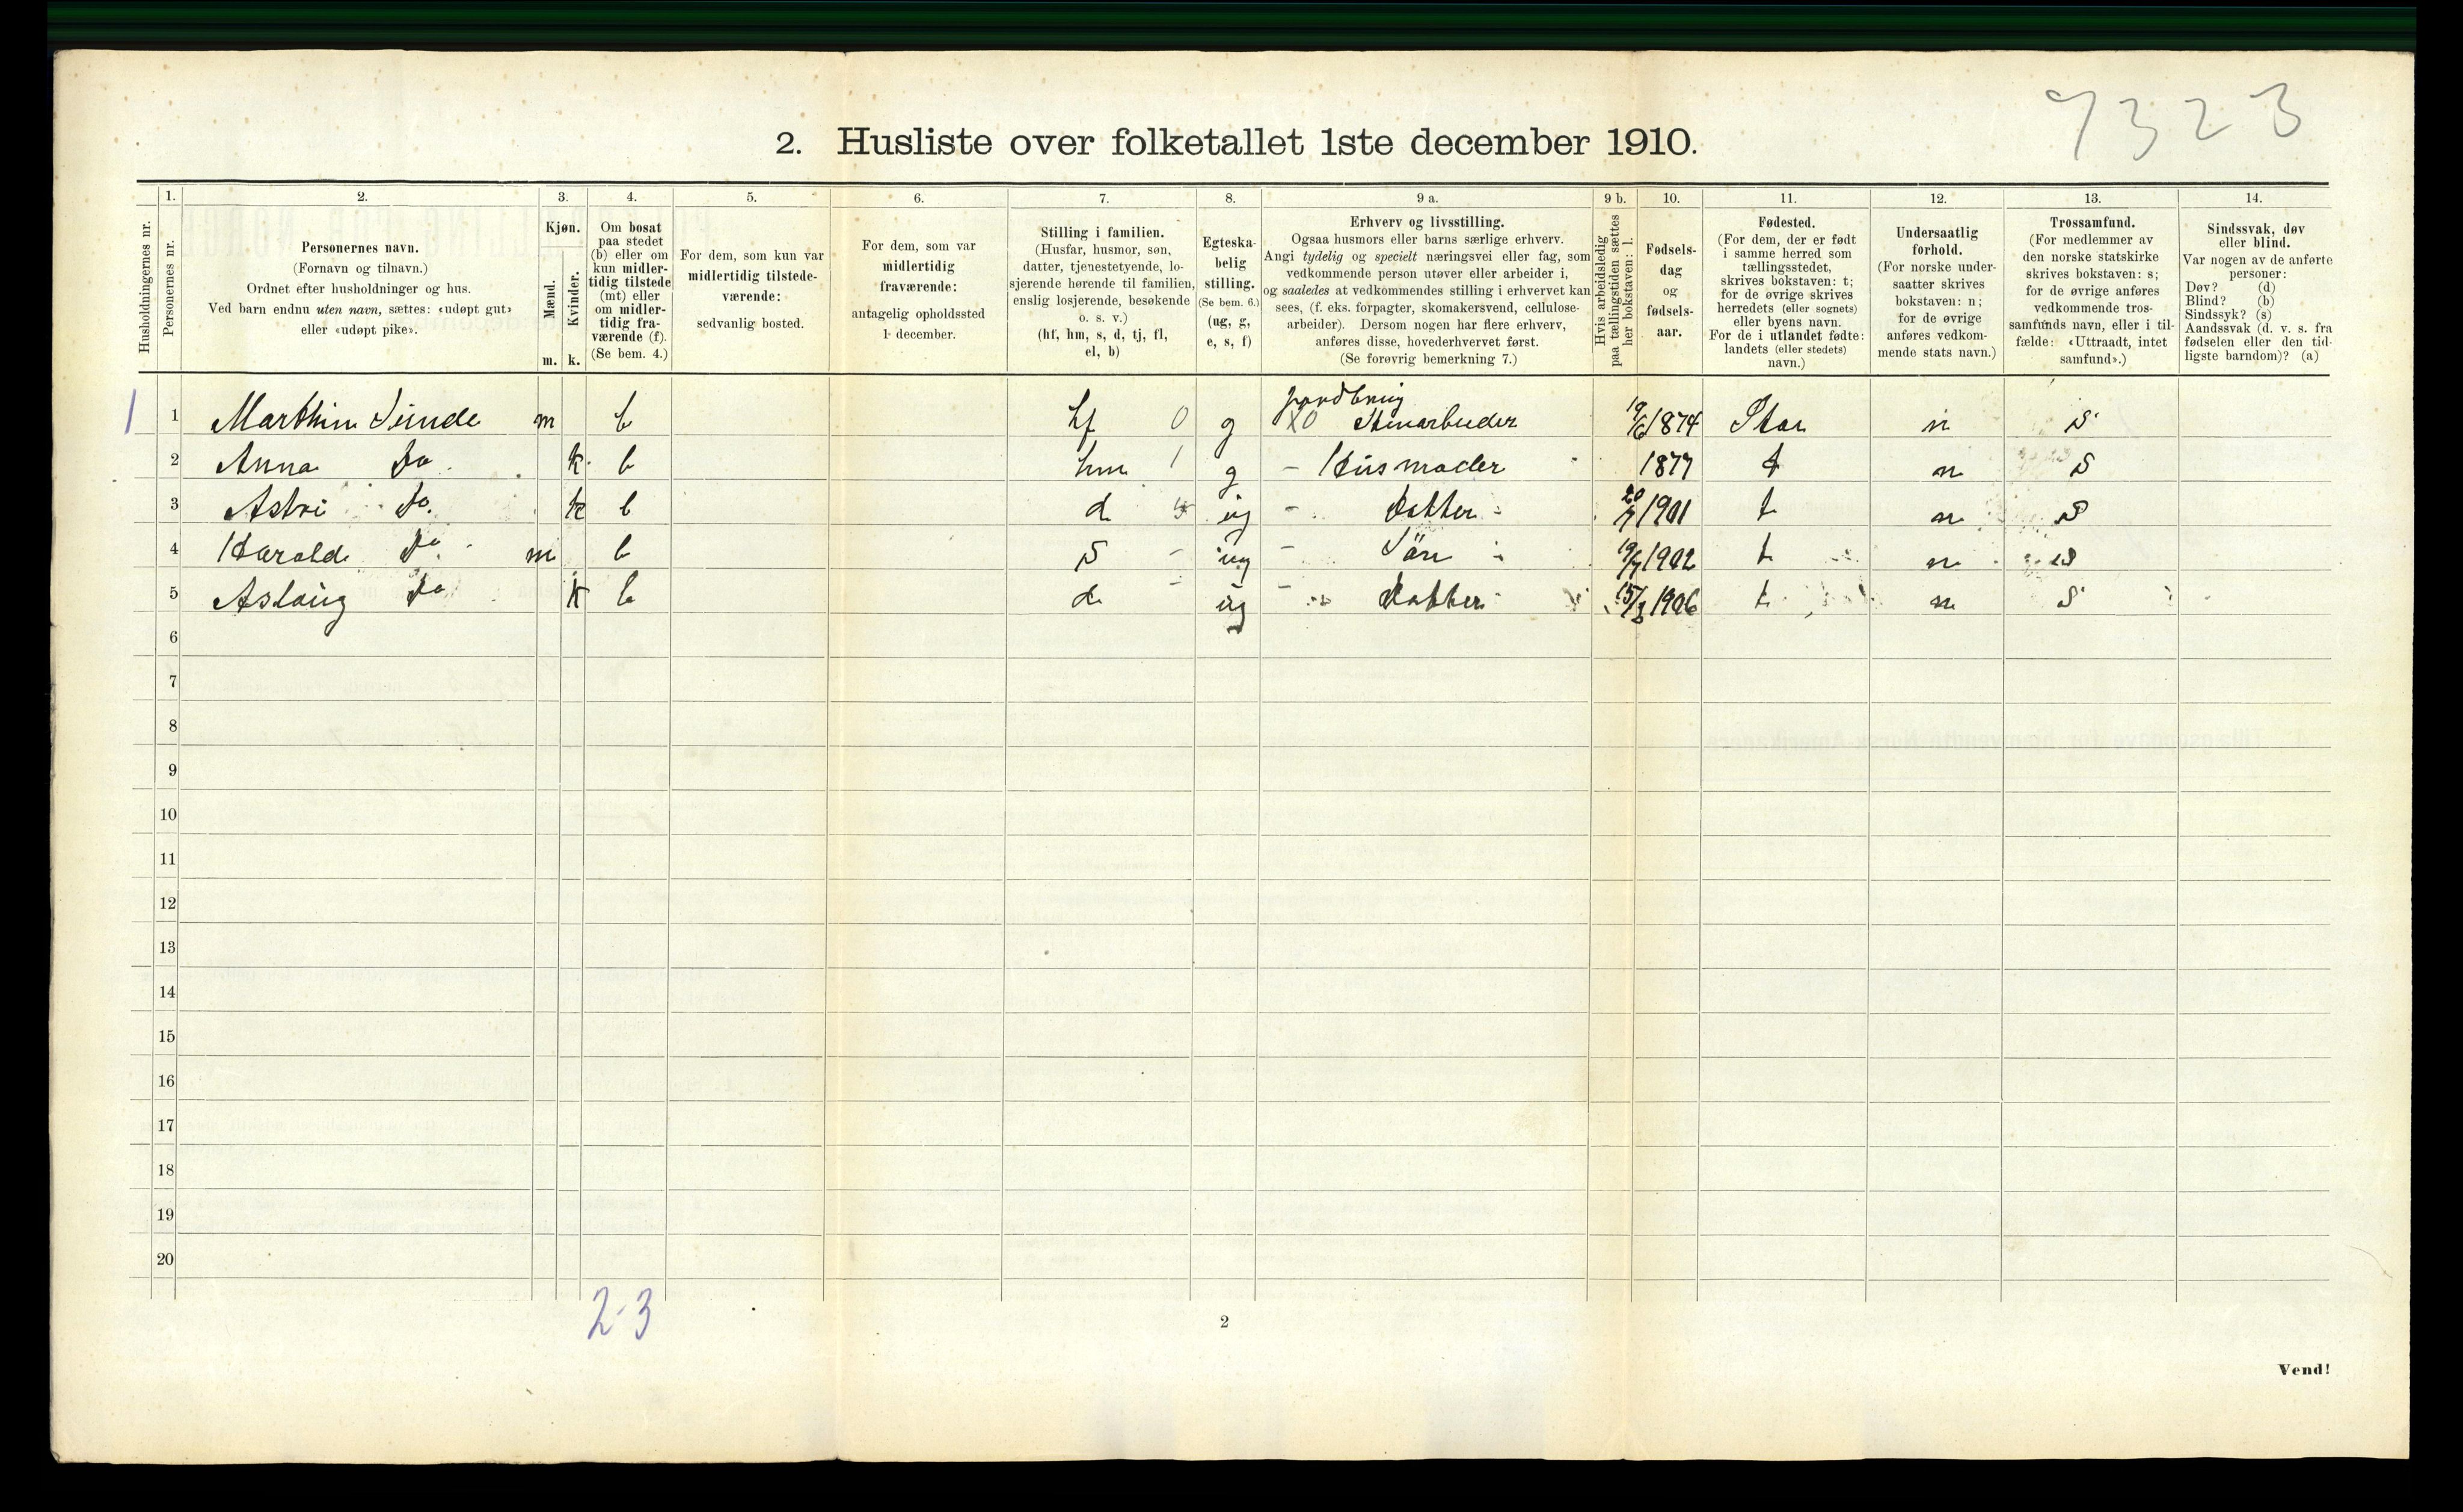 9323
2. Husliste over folketallet 1ste december 1910.
Husholdningernes nr.
1.
Personernes nr.
2.
Personernes navn.
(Fornavn og tilnavn.)
Ordnet efter husholdninger og hus.
Ved barn endnu uten navn, sættes: «udøpt gut»
eller «udøpt pike».
3.
Kjøn.
Mænd.
m.
Kvinder.
k.
4.
Om bosat
paa stedet
(b) eller om
kun midler-
tidig tilstede
(mt) eller
om midler-
tidig fra-
værende (f).
(Se bem. 4.)
5.
For dem, som kun var
midlertidig tilstede-
værende:
sedvanlig bosted.
6.
For dem, som var
midlertidig
fraværende:
antagelig opholdssted
1 december.
7.
Stilling i familien.
(Husfar, husmor, søn,
datter, tjenestetyende, lo-
sjerende hørende til familien,
enslig losjerende, besøkende
o. s. v.)
(hf, hm, s, d, tj, fl,
el, b)
8.
Egteska-
belig
stilling.
(Se bem. 6.)
(ug, g,
e, s, f)
9 a.
Erhverv og livsstilling.
Ogsaa husmors eller barns særlige erhverv.
Angi tydelig og specielt næringsvei eller fag, som
vedkommende person utøver eller arbeider i,
og saaledes at vedkommendes stilling i erhvervet kan
sees, (f. eks. forpagter, skomakersvend, cellulose-
arbeider). Dersom nogen har flere erhverv,
anføres disse, hovederhvervet først.
(Se forøvrig bemerkning 7.)
9 b.
Hvis arbeidsledig
paa tællingstiden sættes
her bokstaven: l.
10.
Fødsels-
dag
og
fødsels-
aar.
11.
Fødested.
(For dem, der er født
i samme herred som
tællingsstedet,
skrives bokstaven: t;
for de øvrige skrives
herredets (eller sognets)
eller byens navn.
For de i utlandet fødte:
landets (eller stedets)
navn.)
12.
Undersaatlig
forhold.
(For norske under-
saatter skrives
bokstaven: n;
for de øvrige
anføres vedkom-
mende stats navn.)
13.
Trossamfund.
(For medlemmer av
den norske statskirke
skrives bokstaven: s;
for de øvrige anføres
vedkommende tros-
samfunds navn, eller i til-
fælde: «Uttraadt, intet
samfund».)
14.
Sindssvak, døv
eller blind.
Var nogen av de anførte
personer:
Døv? (d)
Blind? (b)
Sindssyk? (s)
Aandssvak (d. v. s. fra
fødselen eller den tid-
ligste barndom)? (a)
jordbrug
1 1 Marthin Sunde m b hf 0 g X0 Stenarbeider 19/6 1874 n s
2 Anna Do. k. b hm 1 g - Husmoder 1877 t n s
3 Astri Do. k b d ug - Datter 20/7 1901 t n s
4 Harald Do. m b s - ug - Sön 19/7 1902 t n s
5 Aslaug Do k b d - ug - Datter 15/8 1906 t n s
6
7
8
9
10
11
12
13
14
15
16
17
18
19
20
2-3
2
Vend!